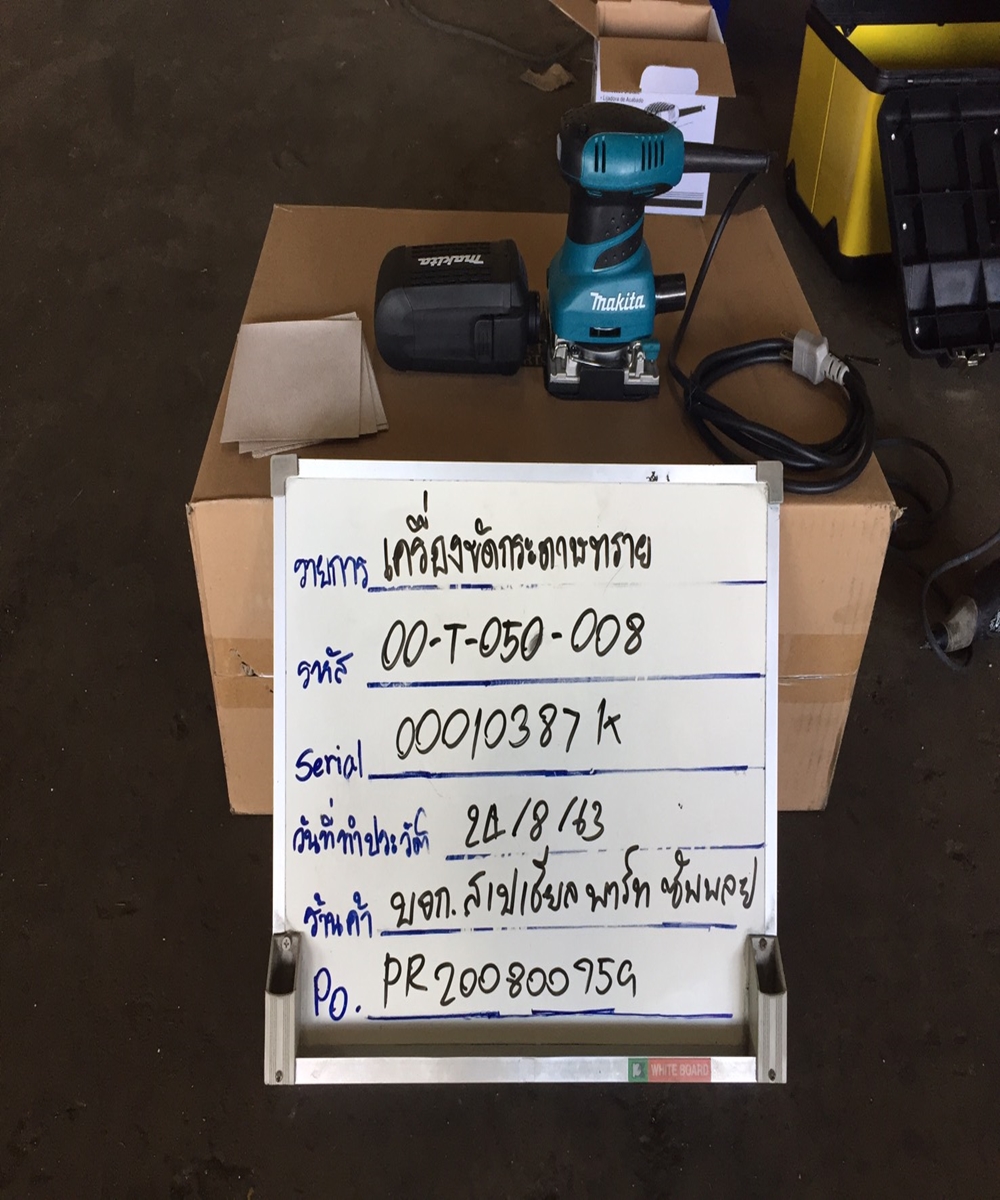 • Lijadora de Acabado
makita
makita
รายการ เครื่องขัดกระดาษทราย
รหัส 00-T-050-008
Serial 00010387 K
วันที่ทำประวัติ /8/63
ร้านค้า บจก. สเปเชียล พาร์ท ซัพพลาย
PO. PR200800959
WHITE BOARD